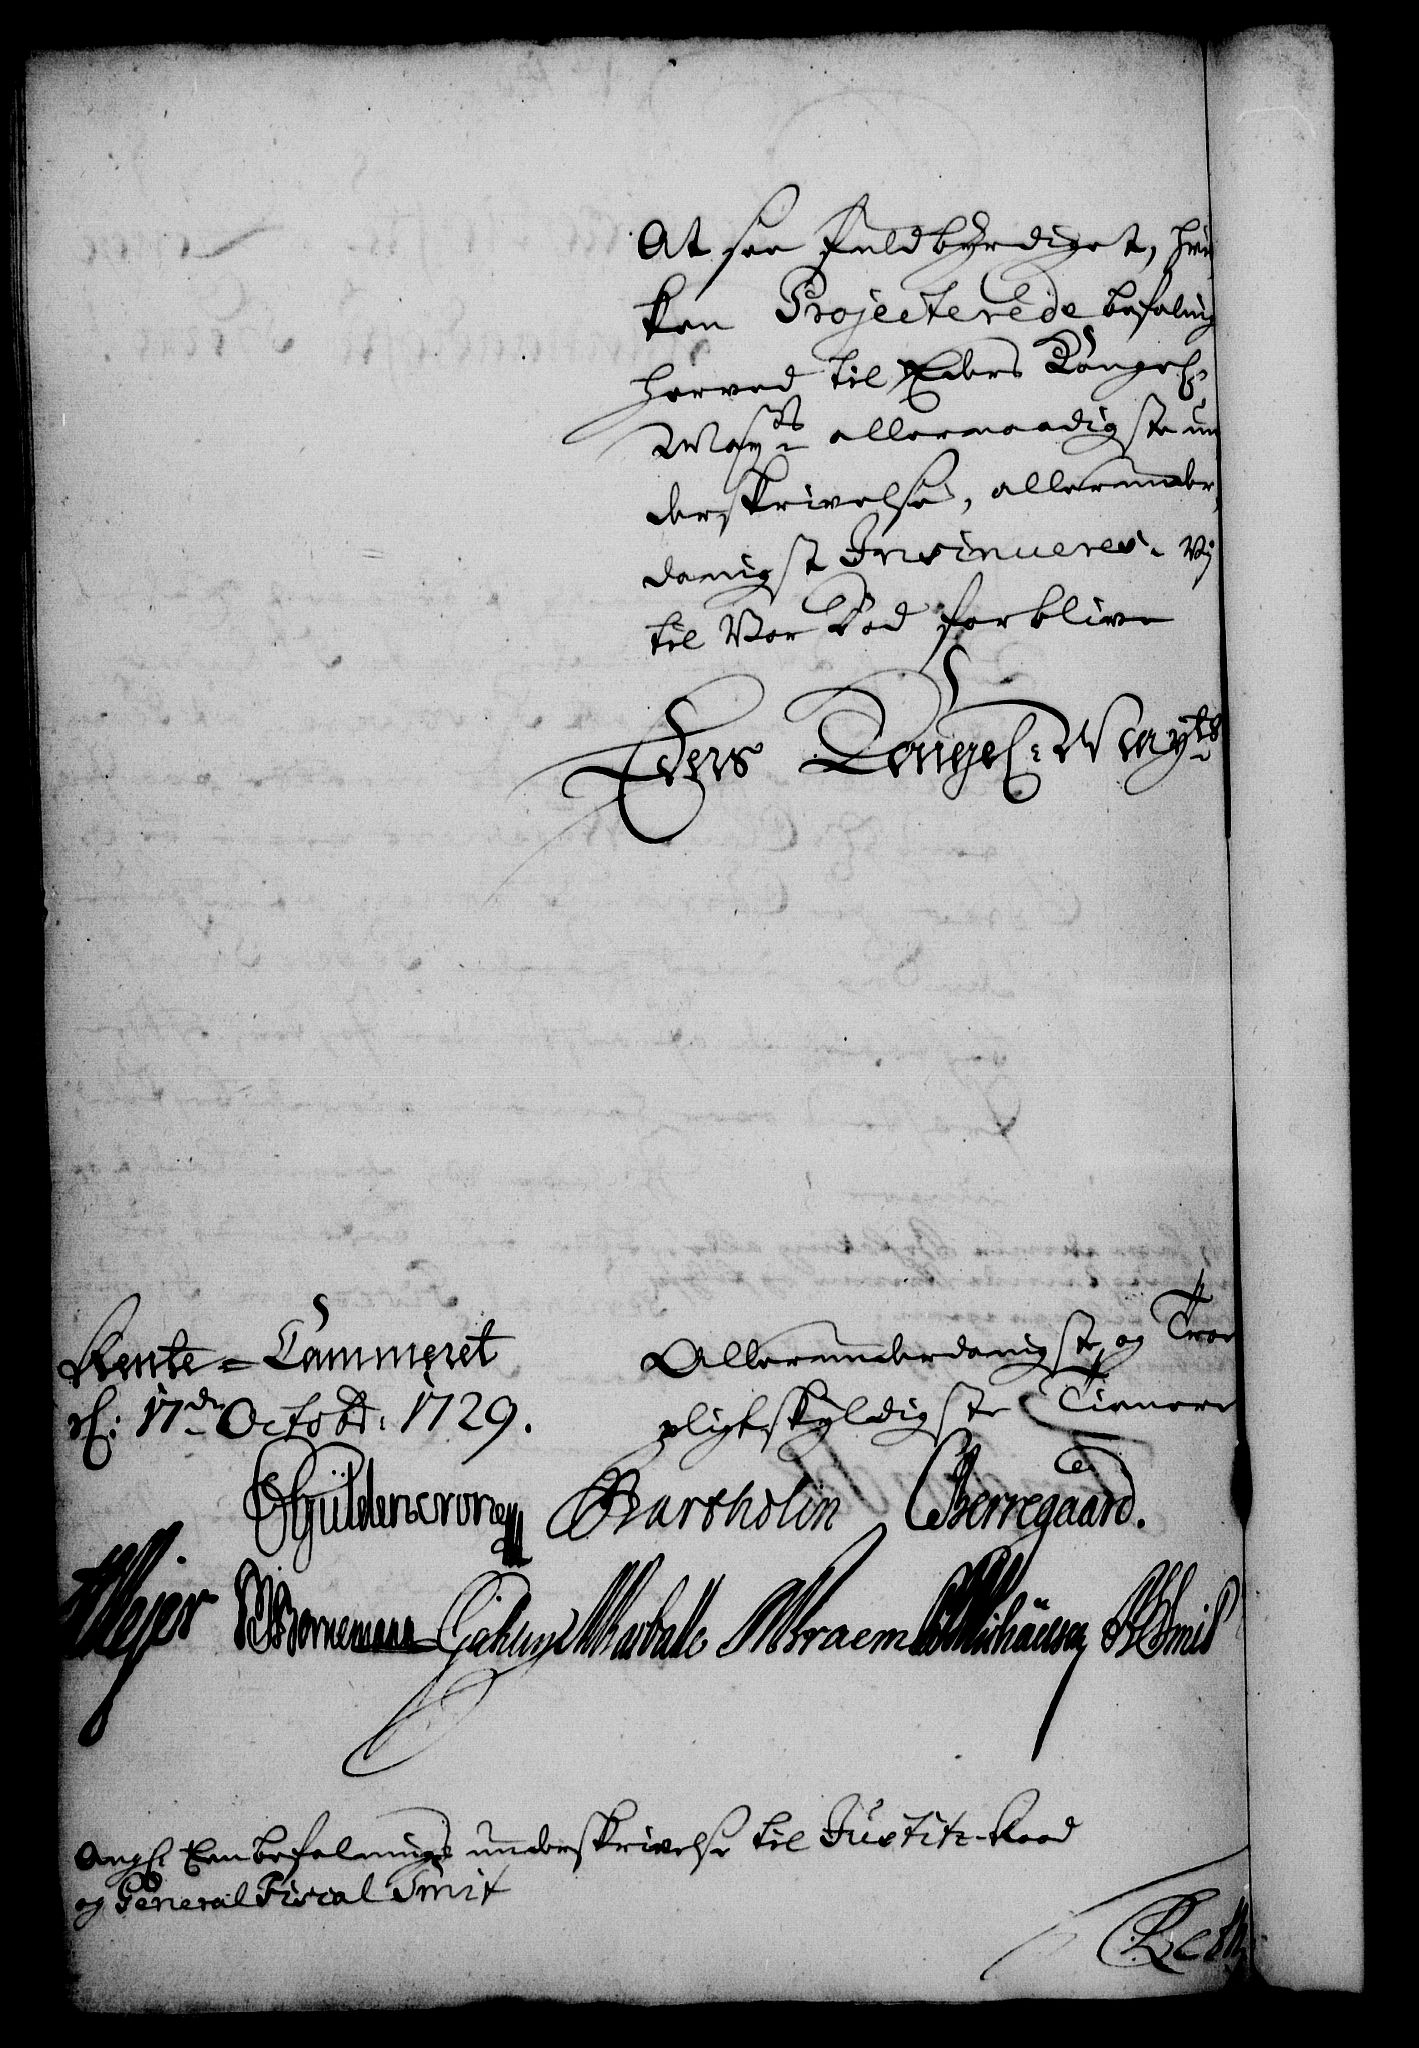 At see fuldbyrdiget, hvil
ken Projecterede befaling
herved til Eders Kongel:
Mayts allernaadigste un
derskrivelse, allerunder,
danigst Insinueres. Vj
til Vor Død forblive
Eders Kongel: Mayts
Rente-Cammeret
d: 17de Octobr: 1729.
Allerunderdanigste og Troe
pligtskyldigste Tienere
Güldencrone Bartholin CBerregaard.
Mejer Bornemann Marballe Kraem Smit
Ang: Een befalnings underskrivelse til Justitz-Raad
og General Fiscal Smit